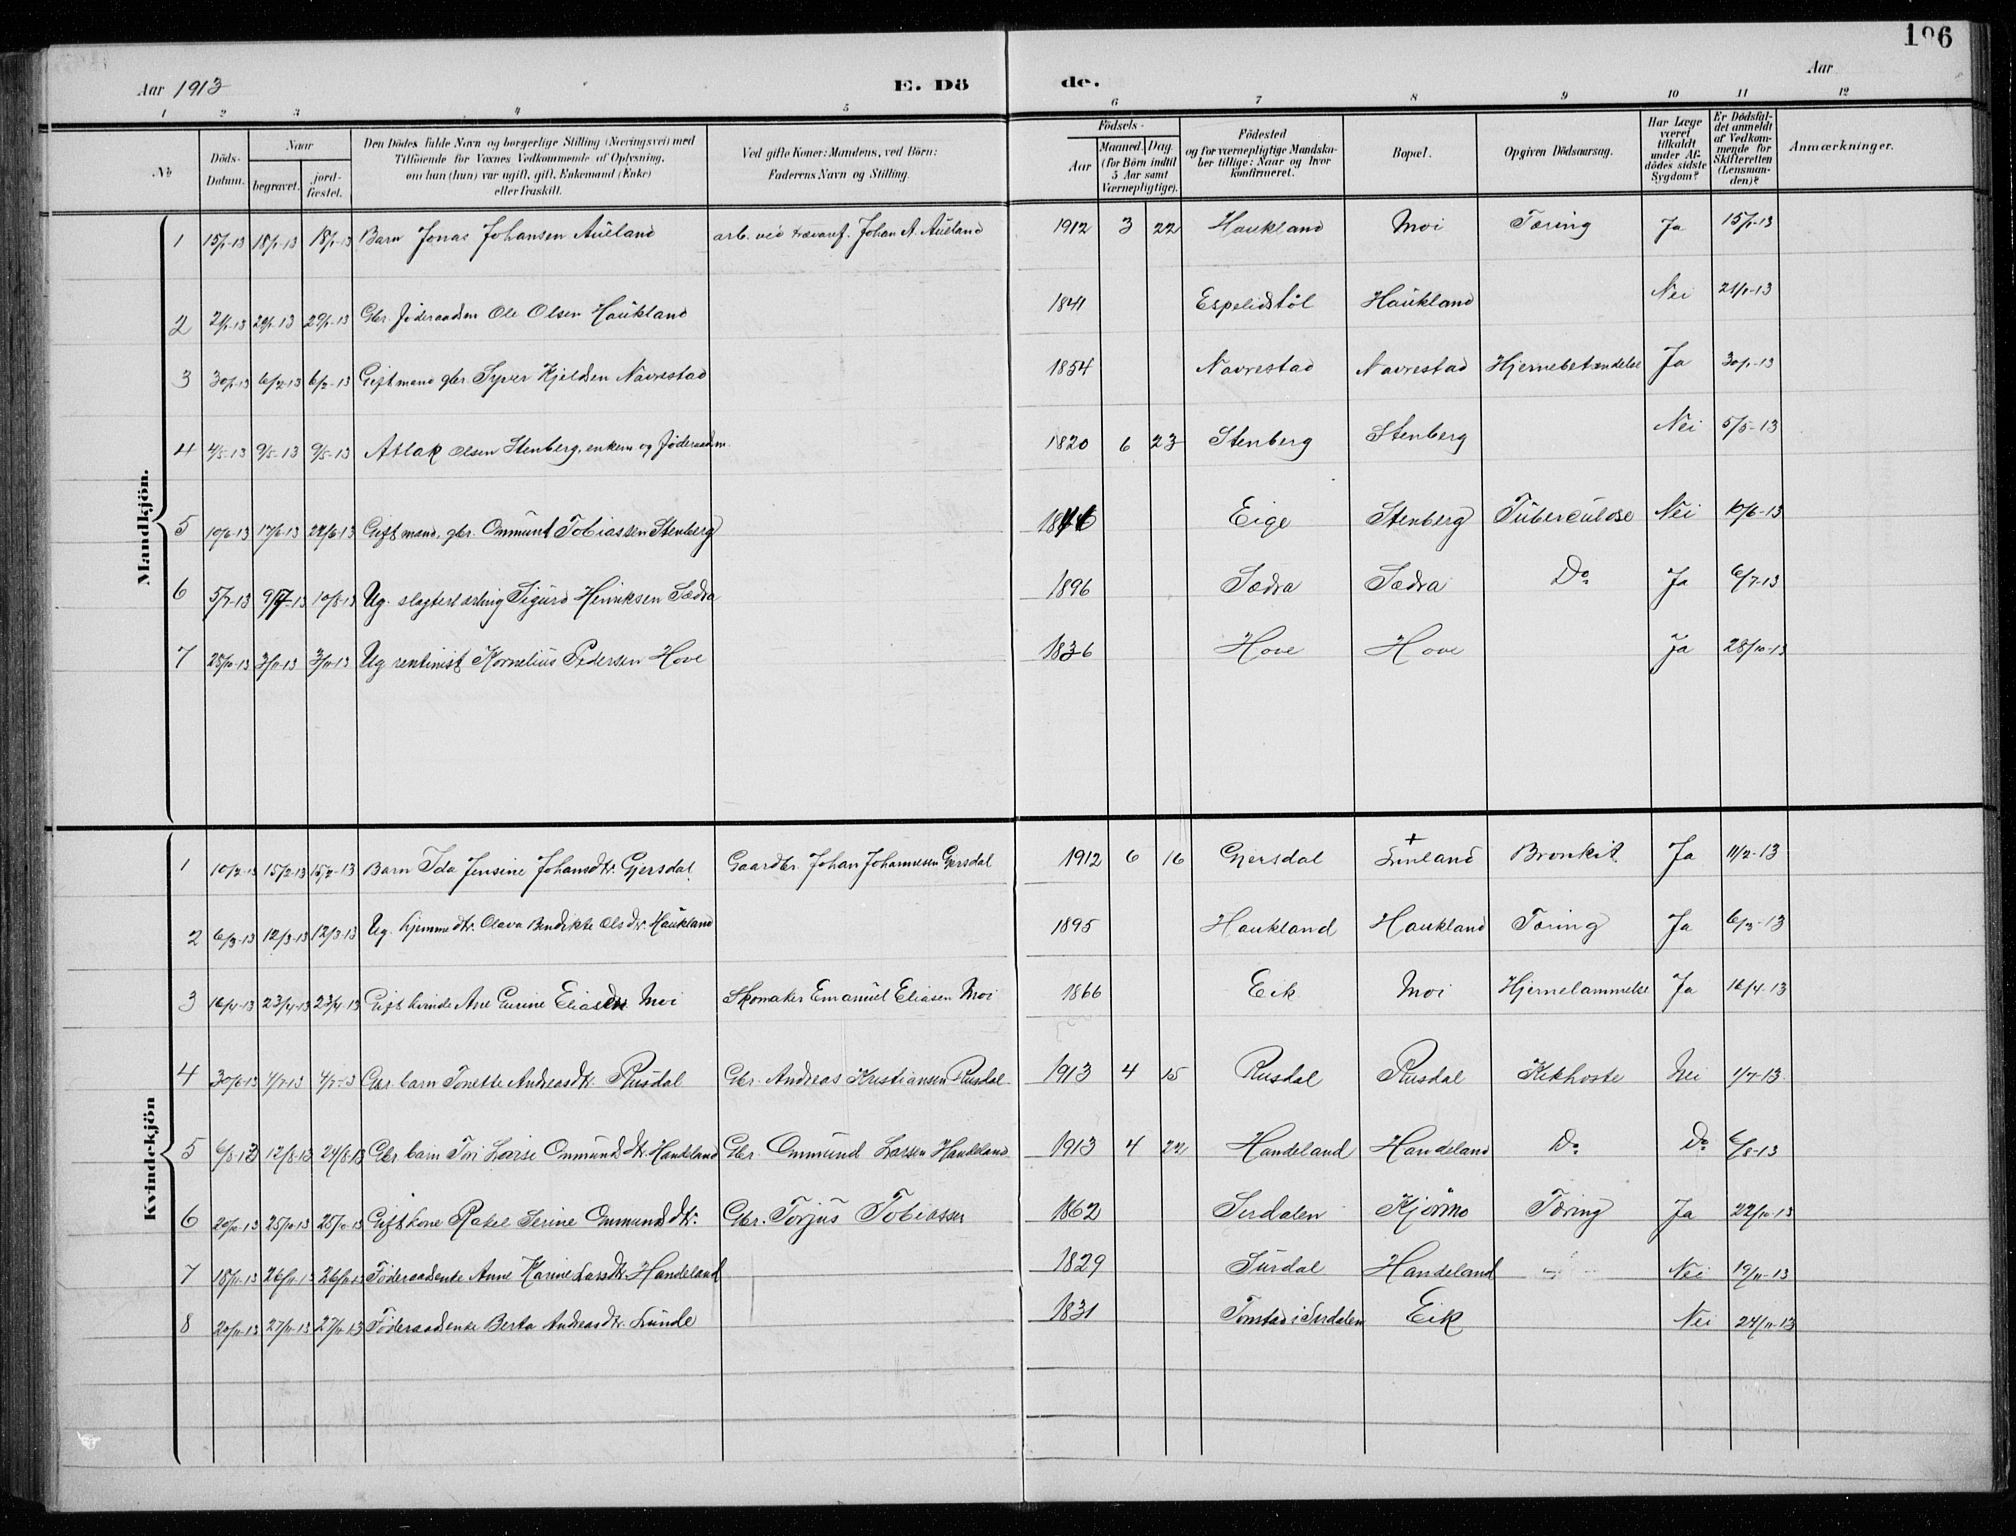 196
Aar 1913 E. Dö de. Aar
1 2 3 4 5 6 7 8 9 10 11 12
№
Döds-Datum.
Naar begravet. jord-fæstet.
Den Dödes fulde Navn og borgerlige Stilling (Næringsvei) med Tilföiende for Voxnes Vedkommende af Oplysning, om han (hun) var ugift, gift, Enkemand (Enke) eller fraskilt.
Ved gifte Koner: Mandens, ved Börn: Faderens Navn og Stilling.
Födsels- Aar Maaned. Dag. (for Börn indtil 5 Aar samt Værnepligtige).
Födested og for værnepligtige Mandskaber tillige: Naar og hvor konfirmeret.
Bopæl.
Opgiven Dödsaarsag.
Har Læge været tilkaldt under Afdödes sidste Sygdom?
Er Dödsfaldet anmeldt af Vedkommende for Skifteretten (Lensmanden)?
Anmærkninger.
Mandkjön.
1 15/1-13 18/1-13 18/1-13 Barn Jonas Johansen Aueland arb. ved trævaref. Johan A. Aueland 1912 3 22 Haukland Moi Tæring Ja 15/1-13
2 21/1-13 29/1-13 29/1-13 Gbr. föderaadsm Ole Olsen Haukland 1841 Espelidstöl Haukland Nei 21/1-13
3 30/1-13 6/2-13 6/2-13 Gift mand gbr. Syver Kjeldsen Navrestad 1854 Navrestad Navrestad Hjernebetændelse Ja 30/1-13
4 4/5-13 9/5-13 9/5-13 Atlak Olsen Stenberg, enkem og föderaadsm. 1820 6 23 Stenberg Stenberg Nei 5/5-13
5 10/6-13 17/6-13 22/6-13 Gift mand, gbr. Ommund Tobiassen Stenberg Eige Stenberg Tuberculose Nei 10/6-13
6 5/7-13 9/7-13 10/8-13 Ug. slagterlærling Sigurd Henriksen Sædra 1896 Sædra Sædra Do Ja 6/7-13
7 28/10-13 3/11-13 3/11-13 Ug rentinist Kornelius Pedersen Hove 1836 Hove Hove Ja 28/10-13
Kvindekjön
1 10/2-13 15/2-13 15/2-13 Barn Ida Jensine Johansdtr. Gjersdal Gaardbr. Johan Johannesen Gjersdal 1912 6 16 Gjersdal + Lunland Bronkit Ja 11/2-13
2 6/3-13 12/3-13 12/3-13 Ug. hjemmedtr. Olava Bendikte Olsdtr. Haukland 1895 Haukland Haukland Tæring Ja 6/3-13
3 16/4-13 23/4-13 23/4-13 Gift kvinde Ane Gurine Eliasen Moi Skomaker Emanuel Eliasen Moi 1866 Eik Moi Hjernelammelse Ja 16/4-13
4 30/6-13 4/7-13 4/7-13 Gbr. barn Tonette Andreasdtr. Rusdal Gbr. Andreas Kristiansen Rusdal 1913 4 15 Rusdal Rusdal Kikhoste Nei 1/7-13.
5 6/8-13 12/8-13 24/8-13 Gbr barn Tori Lovise Ommundsdtr. Handeland Gbr. Ommund Larsen Handeland 1913 4 22 Handeland Handeland Do Do 6/8-13
6 20/10-13 25/10-13 25/10-13 Gift kone Rakel Serine Ommundsdtr. Gbr. Torjus Tobiassen 1862 Sirdalen Kjörmo Tæring Ja 22/10-13
7 18/11-13 26/11-13 26/11-13 Föderaadsenke Anne Karine Larsdtr. Handeland 1829 Surdal Handeland Nei 19/11-13
8 20/11-13 27/11-13 27/11-13 Föderaadsenke Berta Andreasdtr. Lunde 1831 Tonstad i Sirdalen Eik Nei 24/11-13